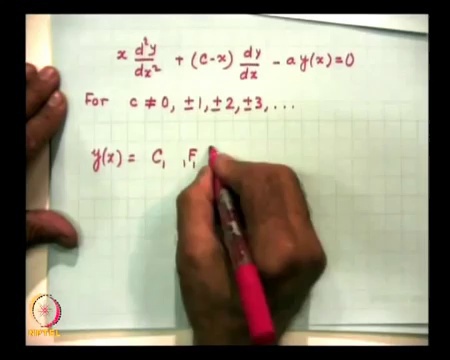 x d²y/dx² + (c-x) dy/dx - a y(x) = 0
For c ≠ 0, ±1, ±2, ±3, ...
y(x) = C₁ ₁F₁
NPTEL